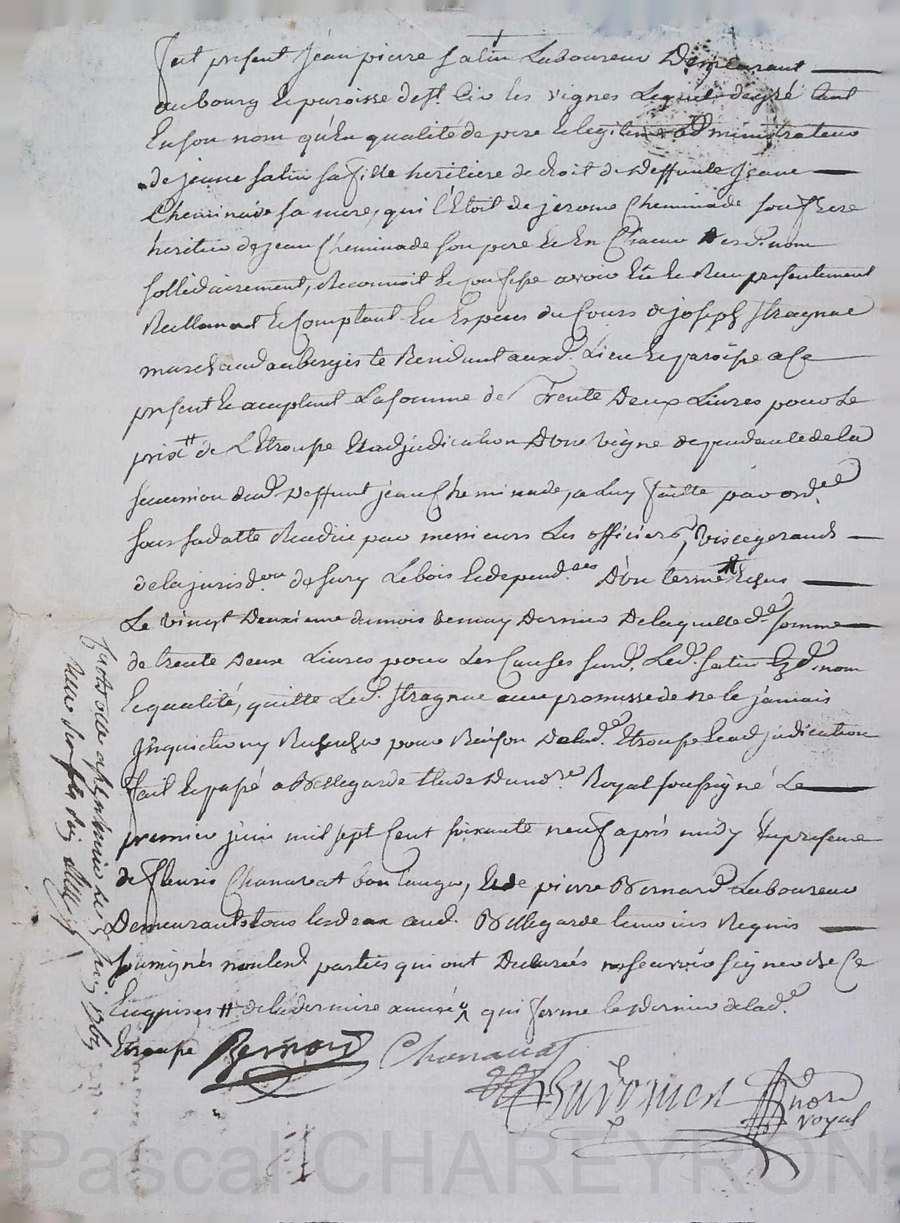 fut présent jean pierre Satin Laboureur Demeurant
au bourg et paroisse de st. Cir les vignes Lequel de gré tant
En son nom qu'En qualité de pere et legitime administrateur
de jeanne Satin sa fille heritiere de droit de deffunte jeanne
Cheminade sa mere, qui l'Etoit de jerome Cheminade son frere
heritier de jean Cheminade son pere et En Chacun desd. nom
sollidairement, Reconnoit et Confesse avoir Eté et Reçu presentement
Reellement et Comptant En Especes du Cours de joseph Stragnac
marchand aubergiste Residant auxd. Lieu et paroisse a ce
present et acceptant La somme de Trente Deux Livres pour le
prix # de L'Etrousse et adjudication D'une vigne dependante de la
succession dud. Deffunt jean Cheminade, a Luy faitte par ord.ce
sous sa datte Rendue par messieurs Les officiers, viscegerands
de la jurisd.on de Sury Le bois et depend.ces D'un terme # Echus
Le vingt Deuxieme du mois de may Dernier De laquelle d.e somme
de trente Deux Livres pour Les Causes susd. Led. Satin Esd. nom
et qualité, quitte Led. Stragnac avec promesse de ne le jamais
Inquietter ny Rechercher pour Raison De lad.e Etrousse et adjudication
fait et passé a Bellegarde Etude Du no.re Royal soussigné Le
premier juin mil sept Cent soixante neuf après midy En presence
de fleuris Chanavat boulanger, et de pierre Bernard Laboureur
Demeurants tous les deux aud. Bellegarde temoins Requis
soussignés non lesd. parties qui ont Declarés ne savoir signer de Ce
Enquises # de la derniere année, qui forme le Dernier de lad.e
Etrousse
Bernard Chanavat
no.re
royal
Pascal CHAREYRON